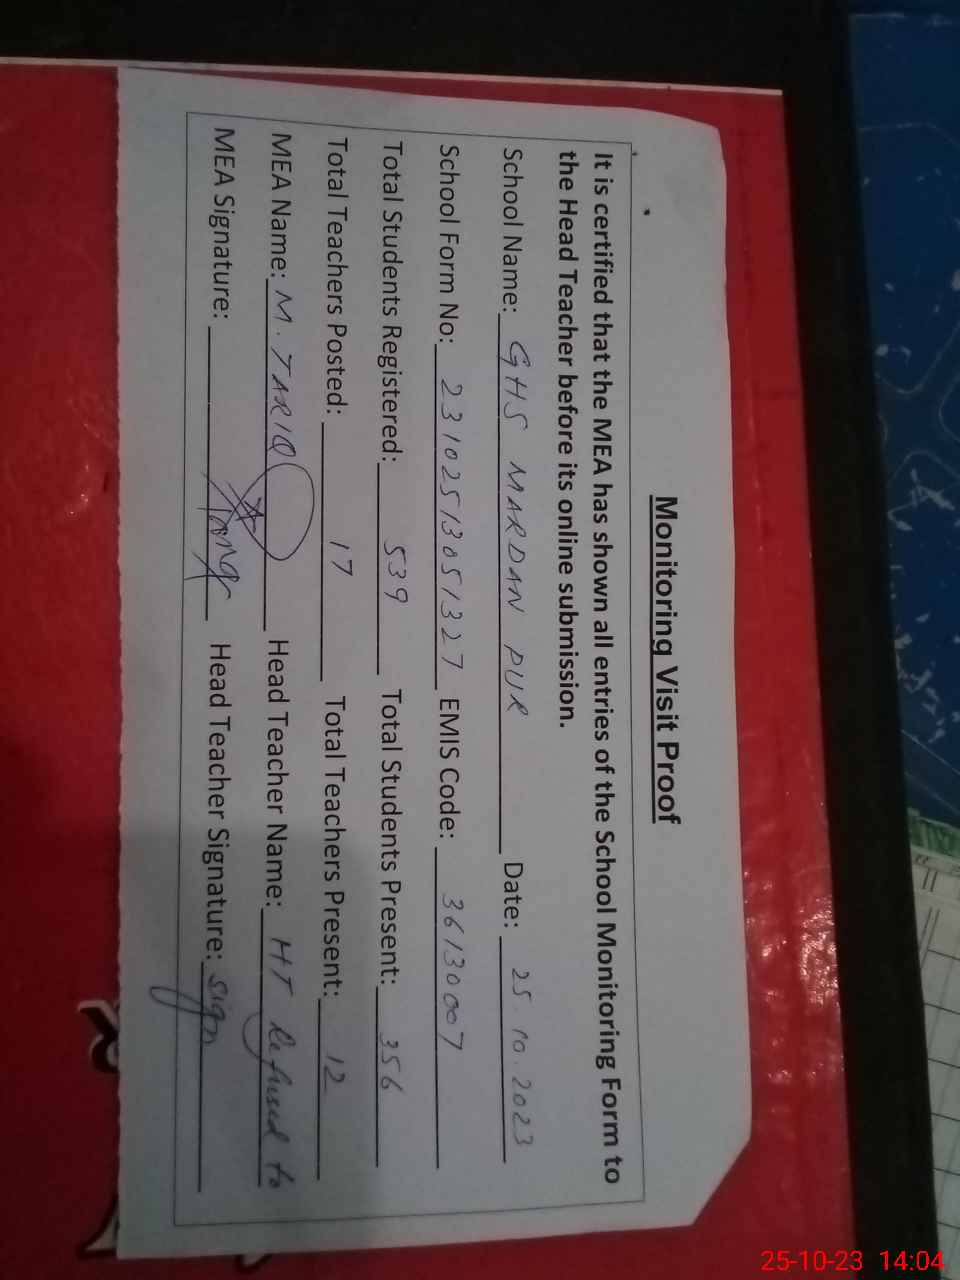 Monitoring Visit Proof
It is certified that the MEA has shown all entries of the School Monitoring Form to
the Head Teacher before its online submission.
School Name: GHS MARDAN PUR Date: 25.10.2023
School Form No: 23102513051327 EMIS Code: 36130007
Total Students Registered: 539 Total Students Present: 356
Total Teachers Posted: 17 Total Teachers Present: 12
MEA Name: M. TARIQ Head Teacher Name: HT Refused to
MEA Signature: Head Teacher Signature: sign
25-10-23 14:04